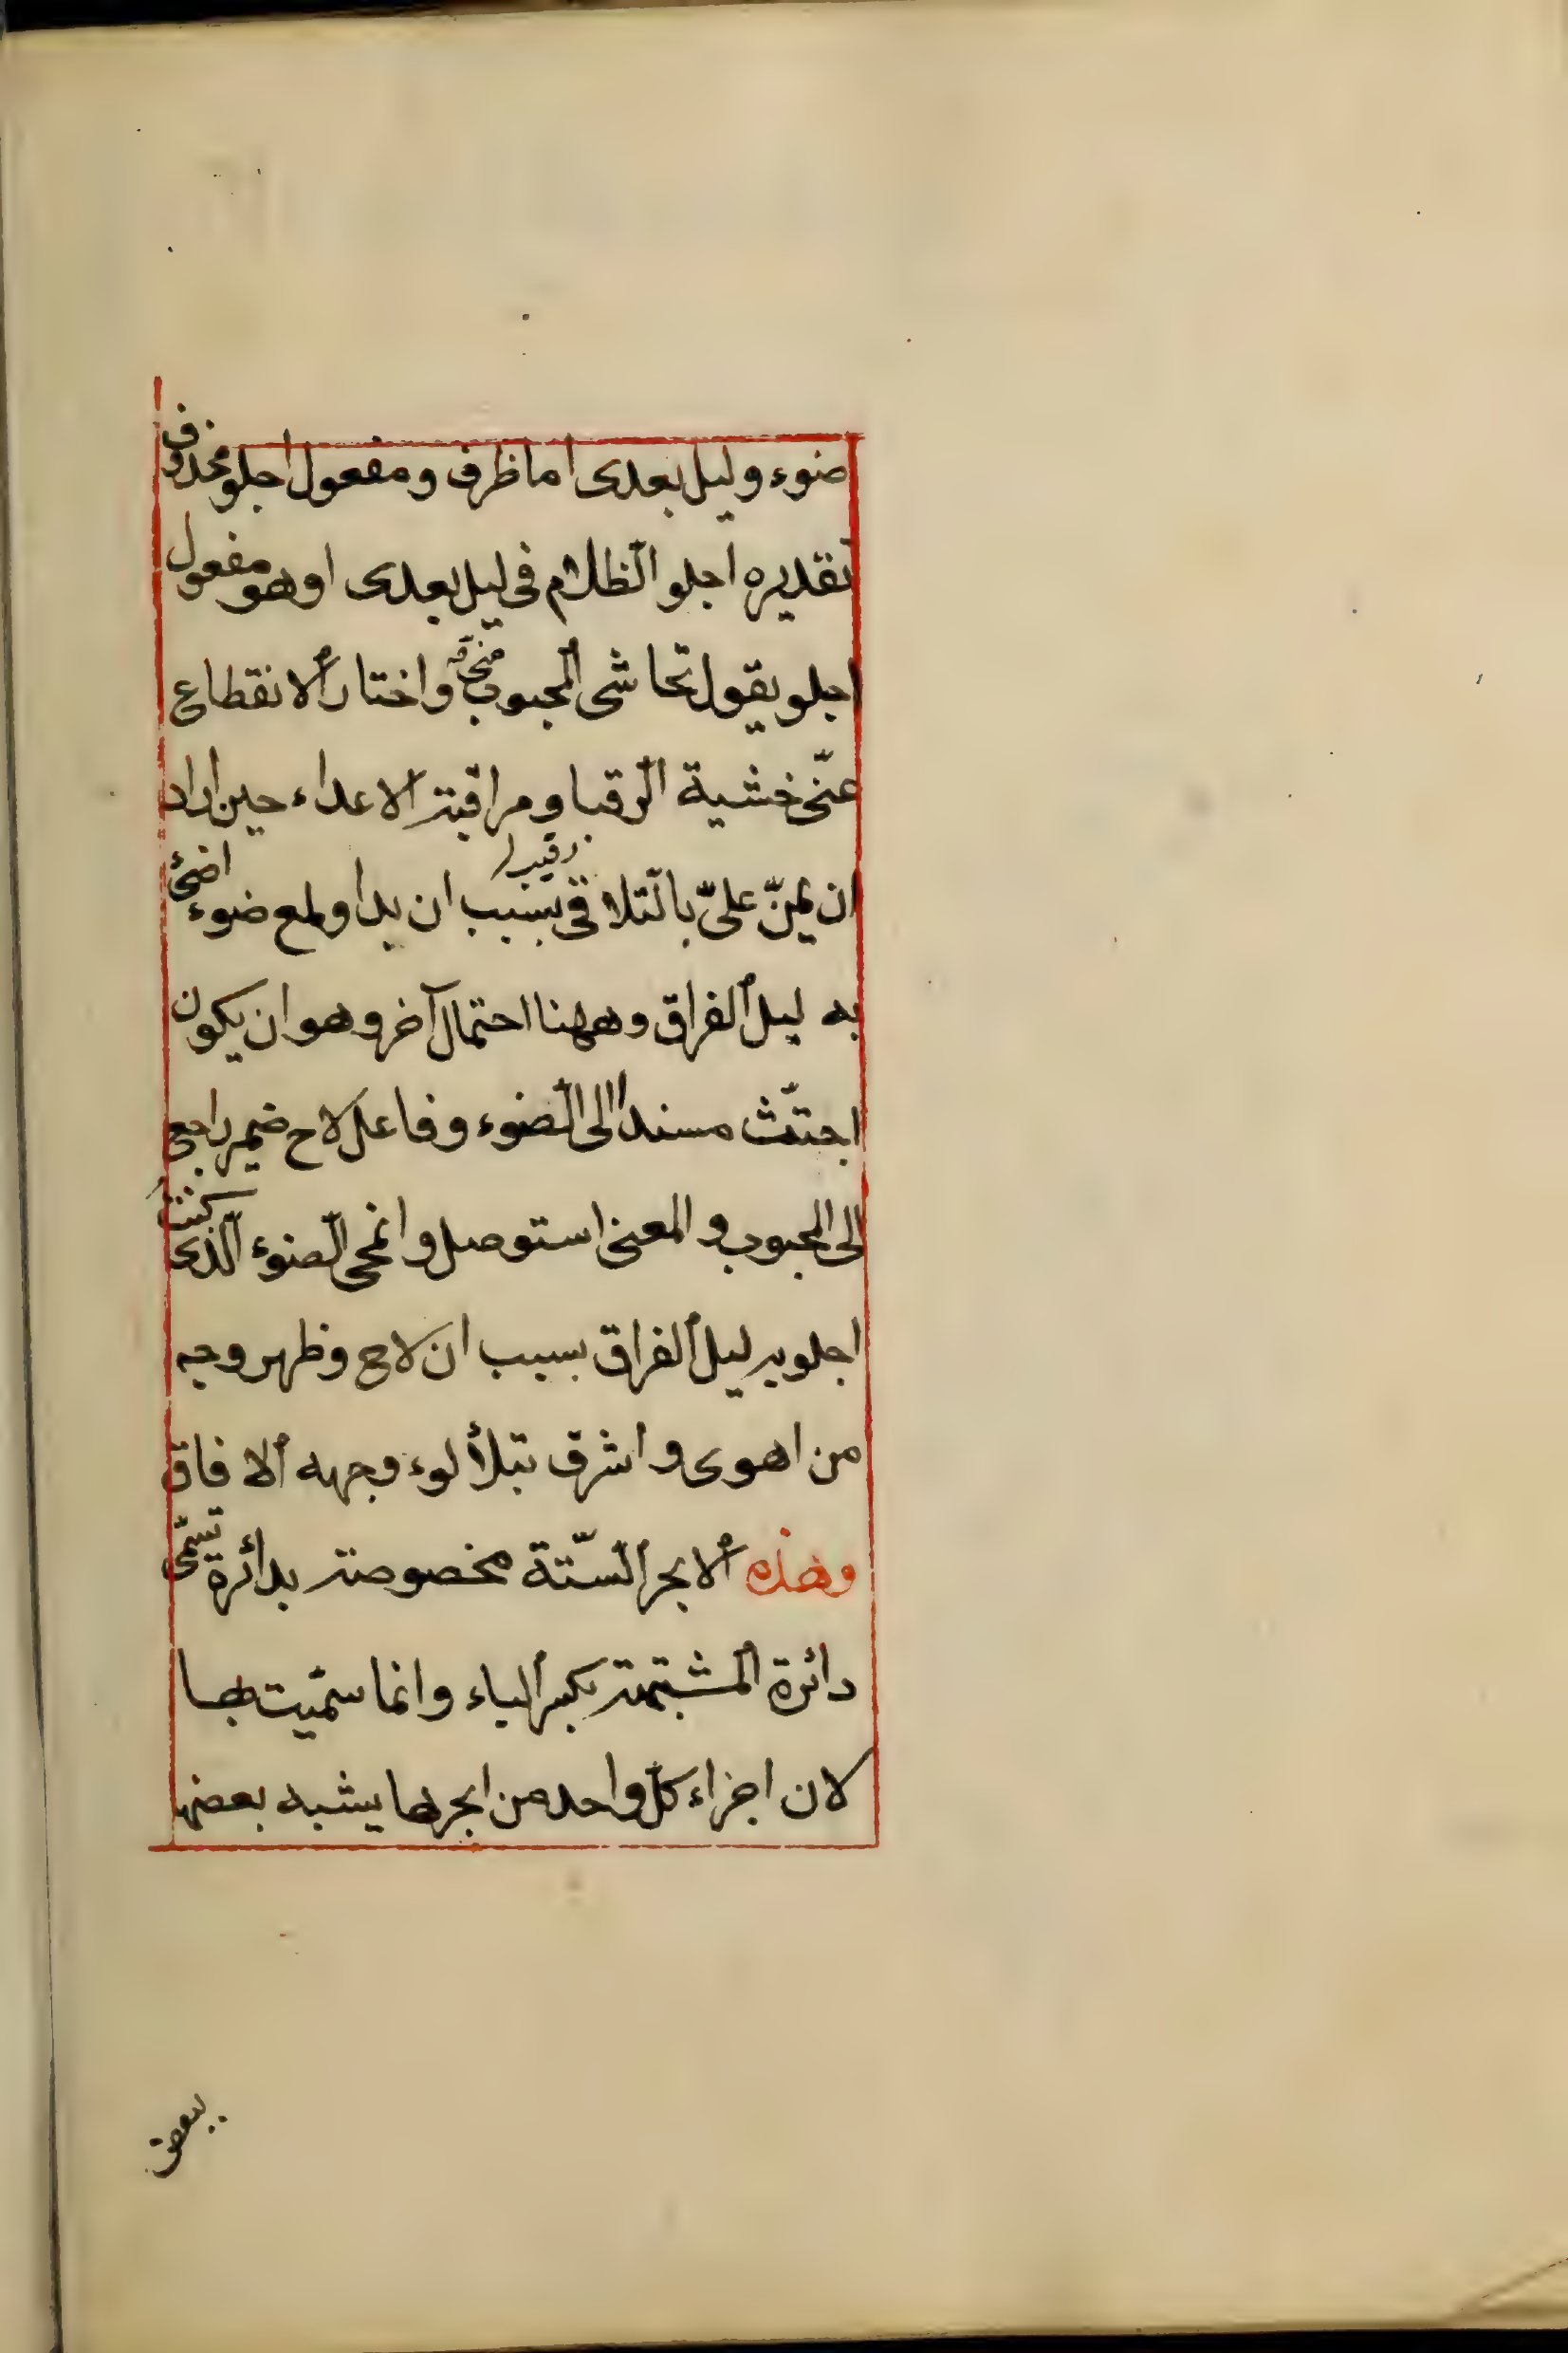 ضوء وليل بعدى اما ظرف ومفعول اجلو محذوف
تقديره اجلو الظلام فى ليل بعدى او هو مفعول
اجلو يقول تحاشى المحبوب واختار الانقطاع
عنّى خشية الرقبا ومراقبة الاعداء حين اراد
رقيب
ان يمنّ علىّ بالتّلاقى بسبب ان بدا ولمع ضوء اضئ
به ليل الفراق وههنا احتمال آخر وهو ان يكون
اجتثّ مسندا الى الضوء وفاعل لاح ضمير راجع
الى المحبوب والمعنى استوصل وانمحى الضوء الّذى كنت
اجلو به ليل الفراق بسبب ان لاح وظهر وجه
من اهوى واشرق بتلألوء وجهه الافاق
وهذه الابحر السّتة مخصوصة بدائرة تسمّى
دائرة المشتبهة بكسر الباء وانما سمّيت بها
لان اجزاء كلّ واحد من ابحرها يشبه بعضها
ببعض